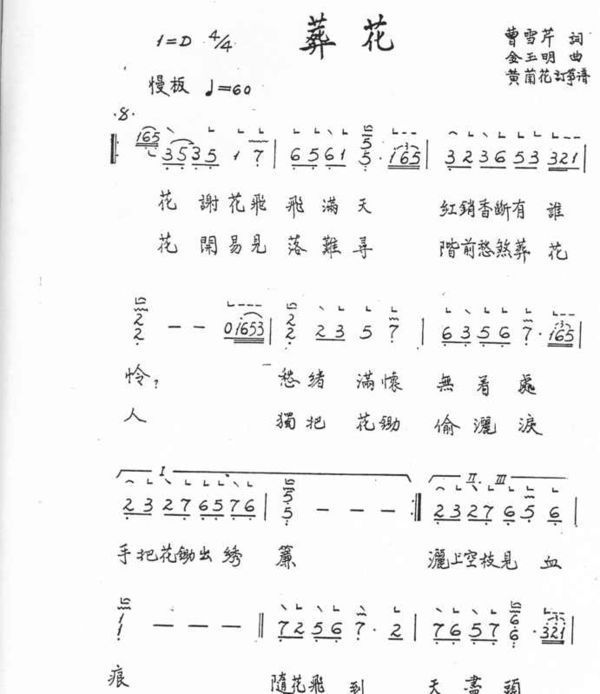 葬花
1=D 4/4
曹雪芹 詞
金玉明 曲
黄菌花訂箏譜
慢板 ♩=60
·8·
165 3535 1 7 | 6561 5 5·165 | 323653 321
花 謝花飛 飛滿天 紅銷香斷有 誰
花 開易見 落難尋 階前愁煞葬 花
2 2 — — 01653 | 2 2 23 5 7 | 6356 7·165 |
憐？ 愁緒 滿懷 無着處
人 獨把 花鋤 偷灑淚
I II. III
23276576 | 5 5 — — — :| 2327 65 6 |
手把花鋤出綉 簾 灑上空枝見 血
1 1 — — — || 7256 7·2 | 7657 6 6·321 |
痕 隨花飛 到 天 盡頭